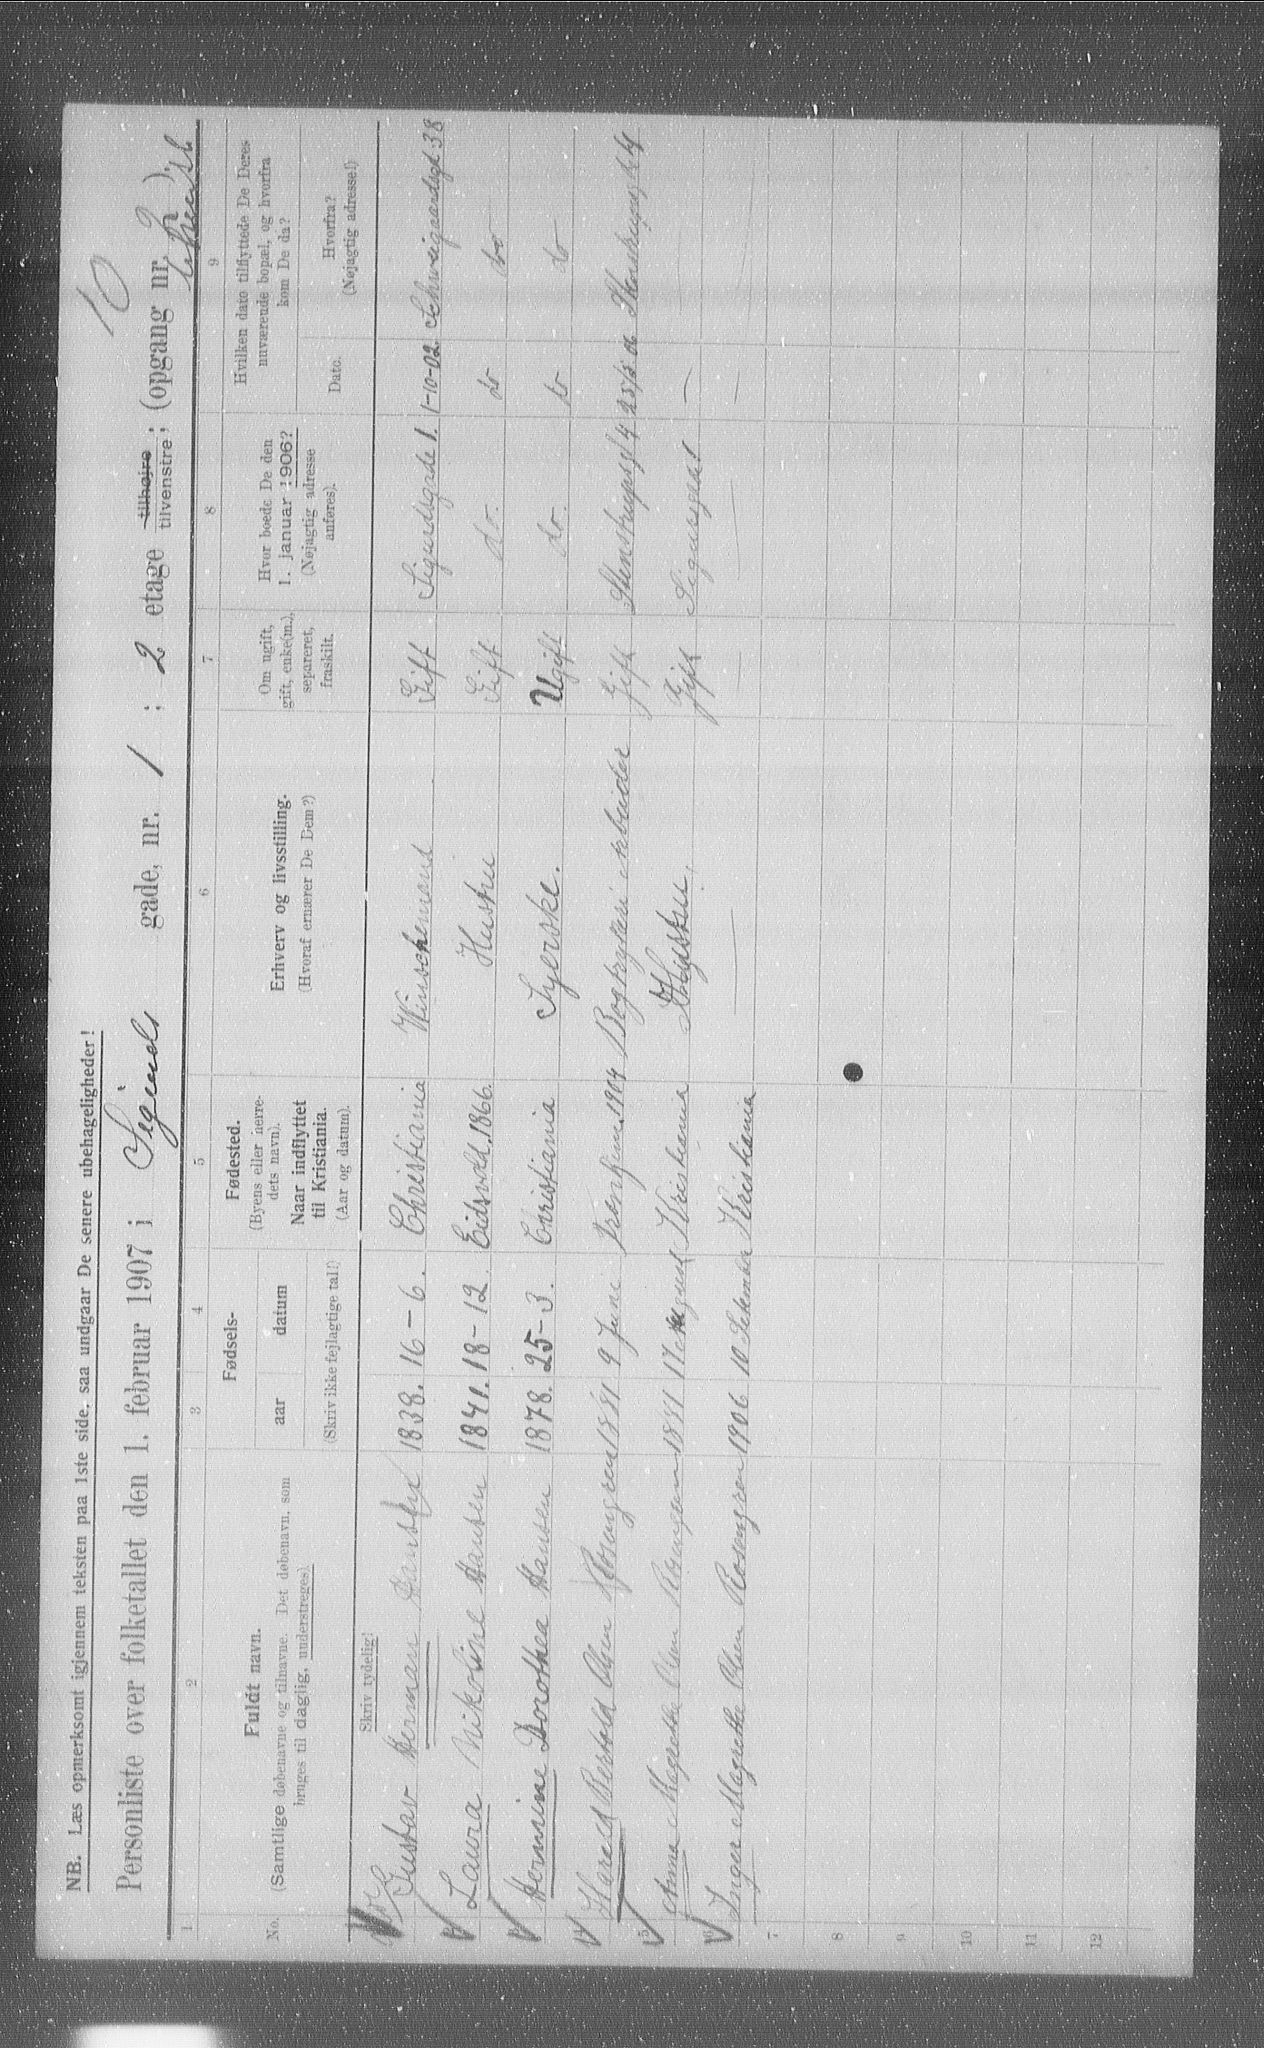 10
NB. Læs opmerksomt igjennem teksten paa 1ste side, saa undgaar De senere ubehageligheder!
Personliste over folketallet den 1. februar 1907 i Siguids gade, nr. 1 ; 2 etage tilhøjre tilvenstre ; (opgang nr. )
1 2 3 4 5 6 7 8 9
No.
Fuldt navn.
(Samtlige døbenavne og tilnavne. Det døbenavn, som
bruges til daglig, understreges).
Skriv tydelig!
Fødsels-
aar datum
(Skriv ikke fejlagtige tal!)
Fødested.
(Byens eller herre-
dets navn).
Naar indflyttet
til Kristiania.
(Aar og datum).
Erhverv og livsstilling.
(Hvoraf ernærer De Dem?)
Om ugift,
gift, enke(m.),
separeret,
fraskilt.
Hvor boede De den
1. januar 1906?
(Nøjagtig adresse
anføres).
Hvilken dato tilflyttede De Deres
nuværende bopæl, og hvorfra
kom De da?
Dato.
Hvorfra?
(Nøjagtig adresse!)
Gustav Herman Hansen 1838. 16-6. Christiania Gift Sigurdsgade 1. 1-10-02 Schweigaardsgd 38
Laura Nikoline Hansen 1841. 18-12. Eidsvold. 1866. Hustru Gift do. do do
Hermine Dorothea Hansen 1878. 25-3. Christiania Syerske. Ugift do. do do
Harald Bertold Olsen Rosengren 1881 9 June Trenhjem. 1904 Bogtrykeri arbeider Gift Stenstrupsgd 4 25/5 06 Stenstrupsgd 4
5 Anna Magrethe Olsen Rosengren 1881 17 August Kristiania Hustru. Gift Sigursgd 1 —
6 Inger Magrethe Olsen Rosengren 1906 10 Setember Kristiania — — — —
7
8
9
10
11
12